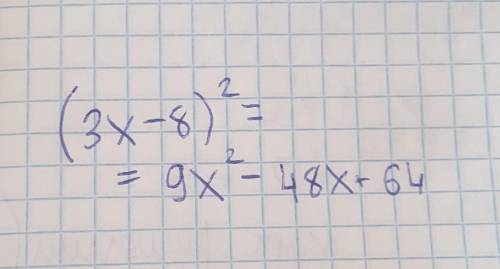 (3x-8)²=
= 9x² - 48x + 64